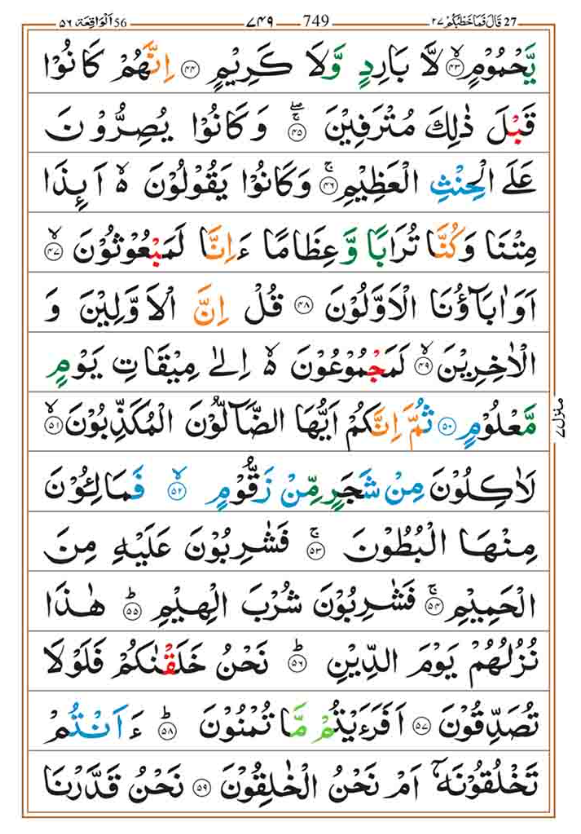 ٥٦ اَلْوَاقِعَة 56 ٧٤٩ 749 27 قَالَ فَمَا خَطْبُكُمْ ٢٧
يَّحْمُوْمٍ ۙ‏﴿۴۳﴾ لَّا بَارِدٍ وَّلَا كَرِيْمٍ ‏﴿۴۴﴾ اِنَّهُمْ كَانُوْا
قَبْلَ ذٰلِكَ مُتْرَفِيْنَ ۖۚ‏﴿۴۵﴾ وَكَانُوْا يُصِرُّوْنَ
عَلَى الْحِنْثِ الْعَظِيْمِۚ‏﴿۴۶﴾ وَكَانُوْا يَقُوْلُوْنَ ۙ اَىِٕذَا
مِتْنَا وَكُنَّا تُرَابًا وَّعِظَامًا ءَاِنَّا لَمَبْعُوْثُوْنَ ۙ‏﴿۴۷﴾
اَوَاٰبَآؤُنَا الْاَوَّلُوْنَ ‏﴿۴۸﴾ قُلْ اِنَّ الْاَوَّلِيْنَ وَ
الْاٰخِرِيْنَۙ‏﴿۴۹﴾ لَمَجْمُوْعُوْنَ ۙ اِلٰى مِيْقَاتِ يَوْمٍ
مَّعْلُوْمٍ ‏﴿۵۰﴾ ثُمَّ اِنَّكُمْ اَيُّهَا الضَّآلُّوْنَ الْمُكَذِّبُوْنَۙ‏﴿۵۱﴾
لَاٰكِلُوْنَ مِنْ شَجَرٍ مِّنْ زَقُّوْمٍ ۙ‏﴿۵۲﴾ فَمَالِـُٔوْنَ
مِنْهَا الْبُطُوْنَ ۚ‏﴿۵۳﴾ فَشٰرِبُوْنَ عَلَيْهِ مِنَ
الْحَمِيْمِۚ‏﴿۵۴﴾ فَشٰرِبُوْنَ شُرْبَ الْهِيْمِؕ‏﴿۵۵﴾ هٰذَا
نُزُلُهُمْ يَوْمَ الدِّيْنِ ؕ‏﴿۵۶﴾ نَحْنُ خَلَقْنٰكُمْ فَلَوْلَا
تُصَدِّقُوْنَ‏﴿۵۷﴾ اَفَرَءَيْتُمْ مَّا تُمْنُوْنَ ؕ‏﴿۵۸﴾ ءَاَنْتُمْ
تَخْلُقُوْنَهٗۤ اَمْ نَحْنُ الْخٰلِقُوْنَ‏﴿۵۹﴾ نَحْنُ قَدَّرْنَا
منزل ٧